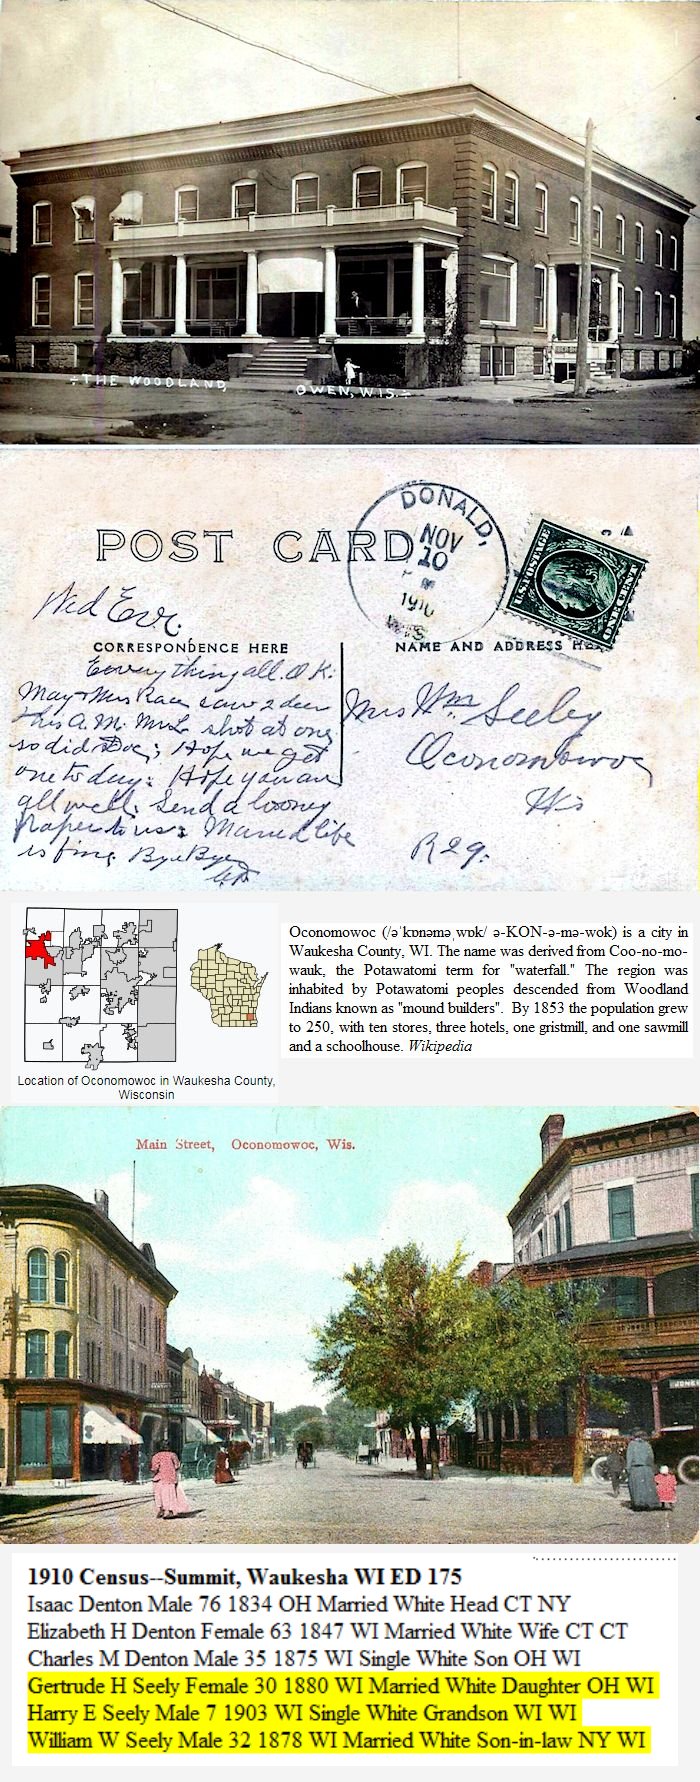 THE WOODLAND,
OWEN, WIS.
POST CARD
DONALD,
NOV
10
1910
WIS
U.S. POSTAGE
ONE CENT
Wed Eve.
CORRESPONDENCE HERE
NAME AND ADDRESS HERE
Everything all O.K.
May & Mrs Race saw 2 deer
this A.M. Mr L shot at one
so did Doc; Hope we get
one today. Hope you are
all well. Send a looney
paper to us. Married life
is fine. Bye Bye
Mrs Wm Seeley
Oconomowoc
Wis
R29.
Oconomowoc (/əˈkɒnəməˌwɒk/ ə-KON-ə-mə-wok) is a city in
Waukesha County, WI. The name was derived from Coo-no-mo-
wauk, the Potawatomi term for "waterfall." The region was
inhabited by Potawatomi peoples descended from Woodland
Indians known as "mound builders". By 1853 the population grew
to 250, with ten stores, three hotels, one gristmill, and one sawmill
and a schoolhouse. Wikipedia
Location of Oconomowoc in Waukesha County,
Wisconsin
Main Street, Oconomowoc, Wis.
1910 Census--Summit, Waukesha WI ED 175
Isaac Denton Male 76 1834 OH Married White Head CT NY
Elizabeth H Denton Female 63 1847 WI Married White Wife CT CT
Charles M Denton Male 35 1875 WI Single White Son OH WI
Gertrude H Seely Female 30 1880 WI Married White Daughter OH WI
Harry E Seely Male 7 1903 WI Single White Grandson WI WI
William W Seely Male 32 1878 WI Married White Son-in-law NY WI